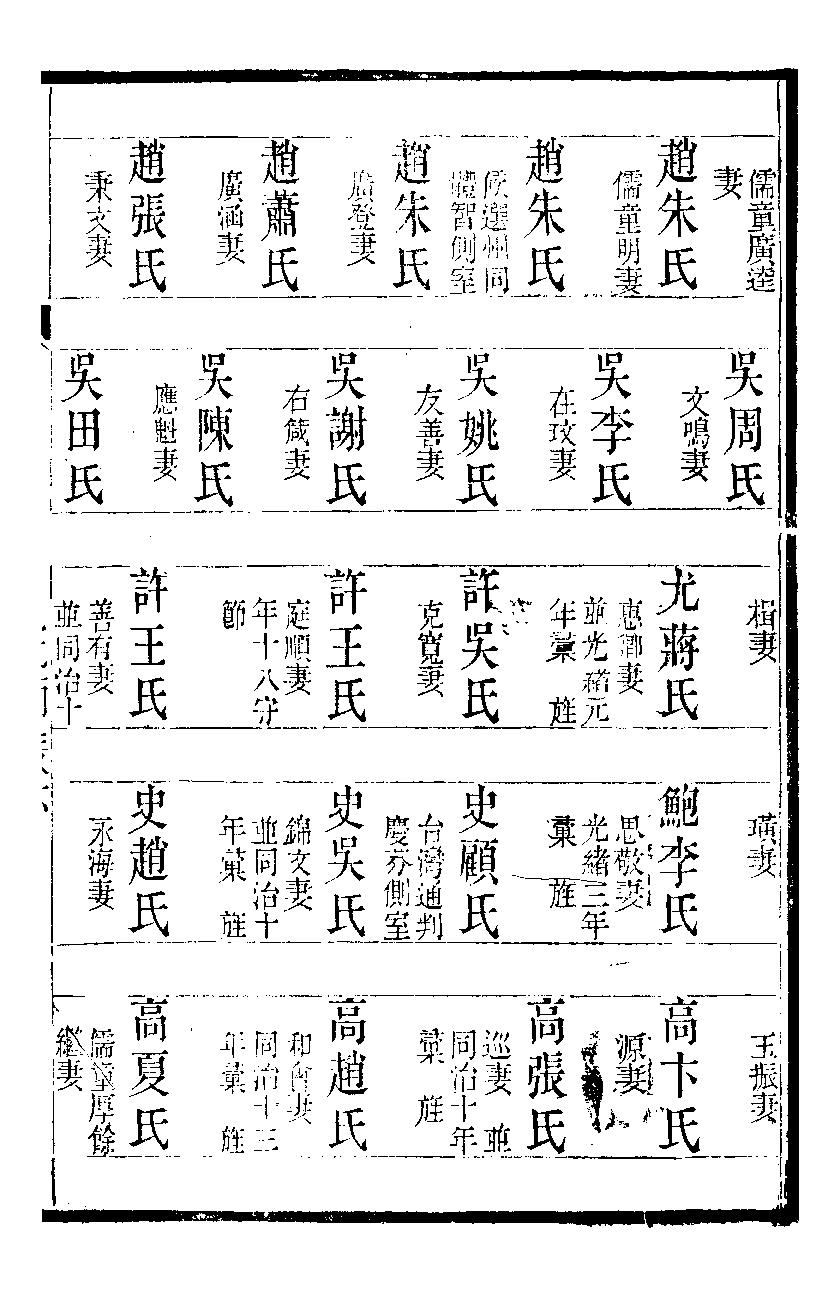 儒童廣選
妻
趙朱氏
儒童明妻
趙朱氏
候選州同
體智側室
趙朱氏
廣登妻
趙蕭氏
廣涵妻
趙張氏
秉文妻
吳周氏
文鳴妻
吳李氏
在玟妻
吳姚氏
友善妻
吳謝氏
右箴妻
吳陳氏
應魁妻
吳田氏
楫妻
尤蔣氏
惠卿妻
並光緒元
年彙 旌
許吳氏
克寬妻
許王氏
庭順妻
年十八守
節
許王氏
善有妻
並同治十
璜妻
鮑李氏
思敬妻
光緒三年
彙 旌
史顧氏
台灣通判
慶芬側室
史吳氏
錦文妻
並同治十
年彙 旌
史趙氏
永海妻
玉振妻
高卞氏
源妻
高張氏
巡妻 並
同治十年
彙 旌
高趙氏
和會妻
同治十三
年彙 旌
高夏氏
儒童厚餘
繼妻